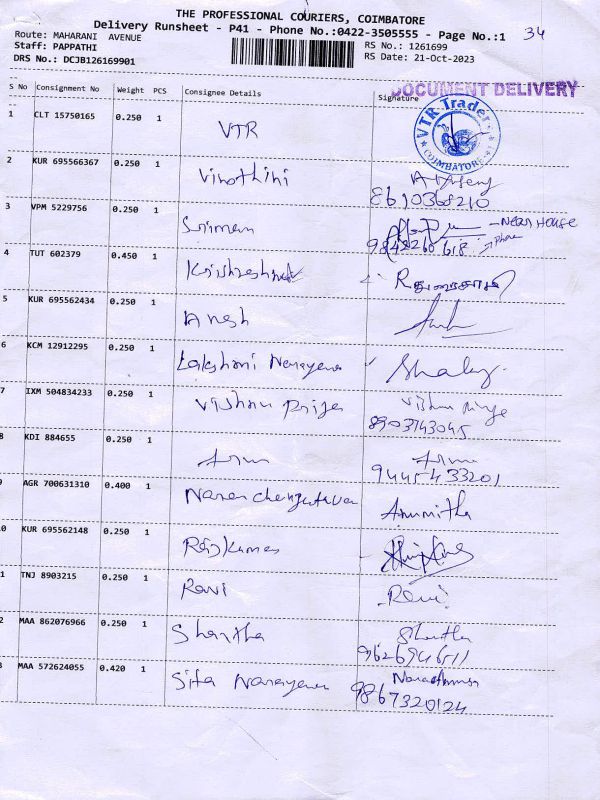 THE PROFESSIONAL COURIERS, COIMBATORE
Delivery Runsheet - P41 - Phone No.:0422-3505555 - Page No.:1 34
Route: MAHARANI AVENUE RS No.: 1261699
Staff: PAPPATHI RS Date: 21-Oct-2023
DRS No.: DCJB126169901
DOCUMENT DELIVERY
S No Consignment No Weight PCS Consignee Details Signature
VTR Traders
COIMBATORE
1 CLT 15750165 0.250 1 VTR
2 KUR 695566367 0.250 1 Vinothini
8610368210
3 VPM 5229756 0.250 1 Sriman - Near House
9843260618 Phone
4 TUT 602379 0.450 1
5 KUR 695562434 0.250 1
6 KCM 12912295 0.250 1 Lakshmi Narayana
7 IXM 504834233 0.250 1 Vishnu Priya Vishnu Priya
8903743045
8 KDI 884655 0.250 1 Arun Arun
9445433201
9 AGR 700631310 0.400 1 Anumitha
0 KUR 695562148 0.250 1 Rajkumar
1 TNJ 8903215 0.250 1 Ravi Ravi
2 MAA 862076966 0.250 1 Shantha Shantha
9626946511
3 MAA 572624055 0.420 1 Sita Narayana
9867320124